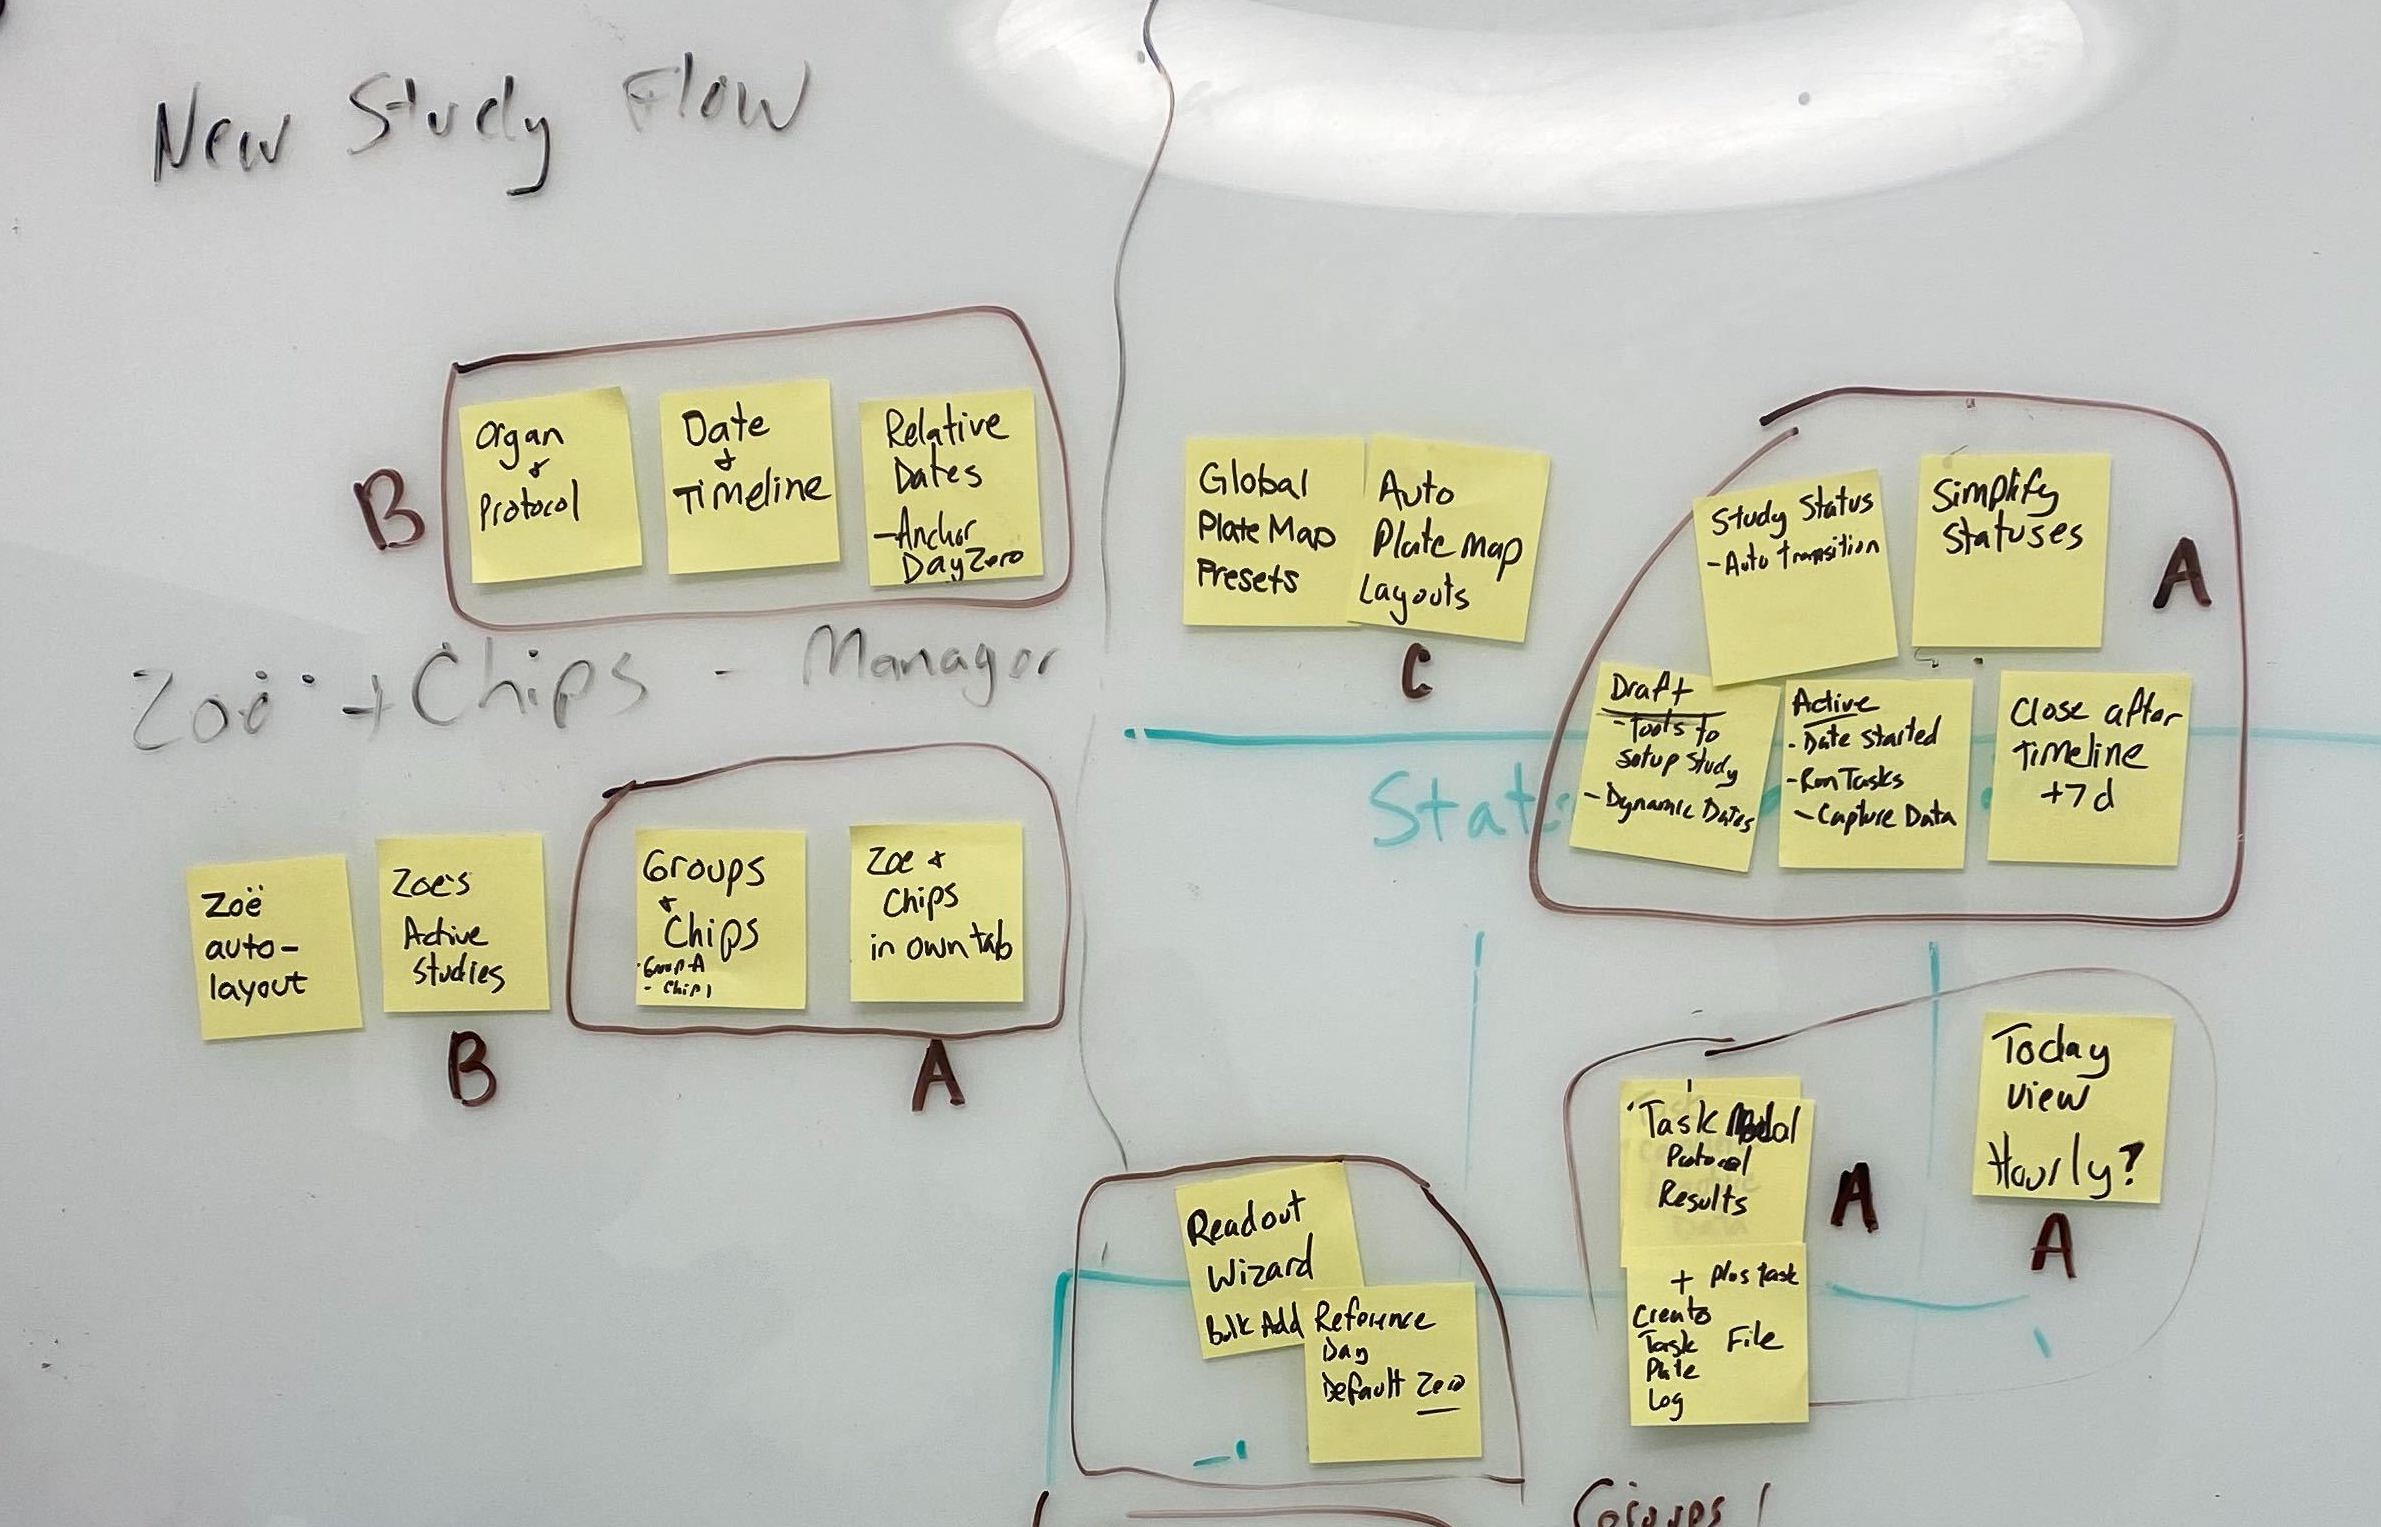 New Study Flow
B
Organ
&
Protocol
Date
&
Timeline
Relative
Dates
-Anchor
Day Zero
Zoë + Chips - Manager
Zoë
auto-
layout
Zoe's
Active
Studies
B
Groups
&
Chips
Group A
- Chip 1
Zoe &
Chips
in own tab
A
Global
Plate Map
Presets
Auto
Plate Map
Layouts
C
Study Status
-Auto transition
Simplify
Statuses
A
Draft
-Tools to
setup study
- Dynamic Dates
Active
- Date Started
-Run Tasks
- Capture Data
Close after
Timeline
+7d
Readout
Wizard
Bulk Add
Reference
Day
Default Zero
Task Modal
Protocol
Results
A
+ plus task
Create
Task File
Plate
Log
Today
View
Hourly?
A
Groups